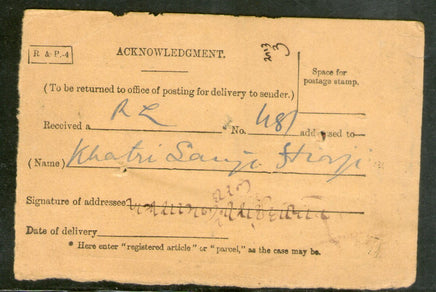 R & P.-4
ACKNOWLEDGMENT.
Space for
postage stamp.
(To be returned to office of posting for delivery to sender.)
Received a R L * No. 481 addressed to
(Name) Khatri
Signature of addressee
Date of delivery
* Here enter "registered article" or "parcel," as the case may be.